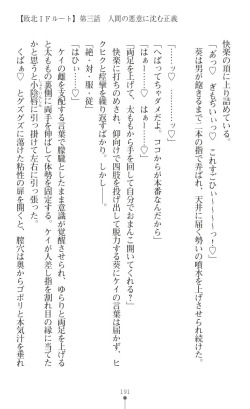 【敗北IFルート】第三話　人間の悪意に沈む正義
快楽の頂に上り詰めている。
「あっ♡　ぎもちいいっ♡　これすごひぃ～～～～っ！♡」
葵は男が飽きるまで二本の指で弄ばれ、天井に届く勢いの噴水を上げさせられた。
「――ッ♡………ッ♡」
「へばってちゃダメだよ。ココからが本番なんだから」
「はぁ――♡　はぁ――♡」
「両足を上げて、太ももから手を回して自分でおまんこ開いてくれる？」
快楽に打ちのめされ、仰向けで四肢を投げ出して脱力する葵にケイの言葉は届かず、ヒ
クヒクと痙攣を繰り返すばかり。しかし――。
「絶・対・服・従」
「はひぃ……♡」
ケイの雌を支配する言葉で朦朧としたまま意識が覚醒させられ、ゆらりと両足を上げる
と太ももの裏側に両手を伸ばして体勢を固定する。ケイが人差し指を割れ目の縁に当てた
かと思うと小陰唇に引っ掛けて左右に引っ張った。
くぱぁ♡　とグズグズに蕩けた粘性の扉を開くと、膣穴は奥からゴポリと本気汁を垂れ
191